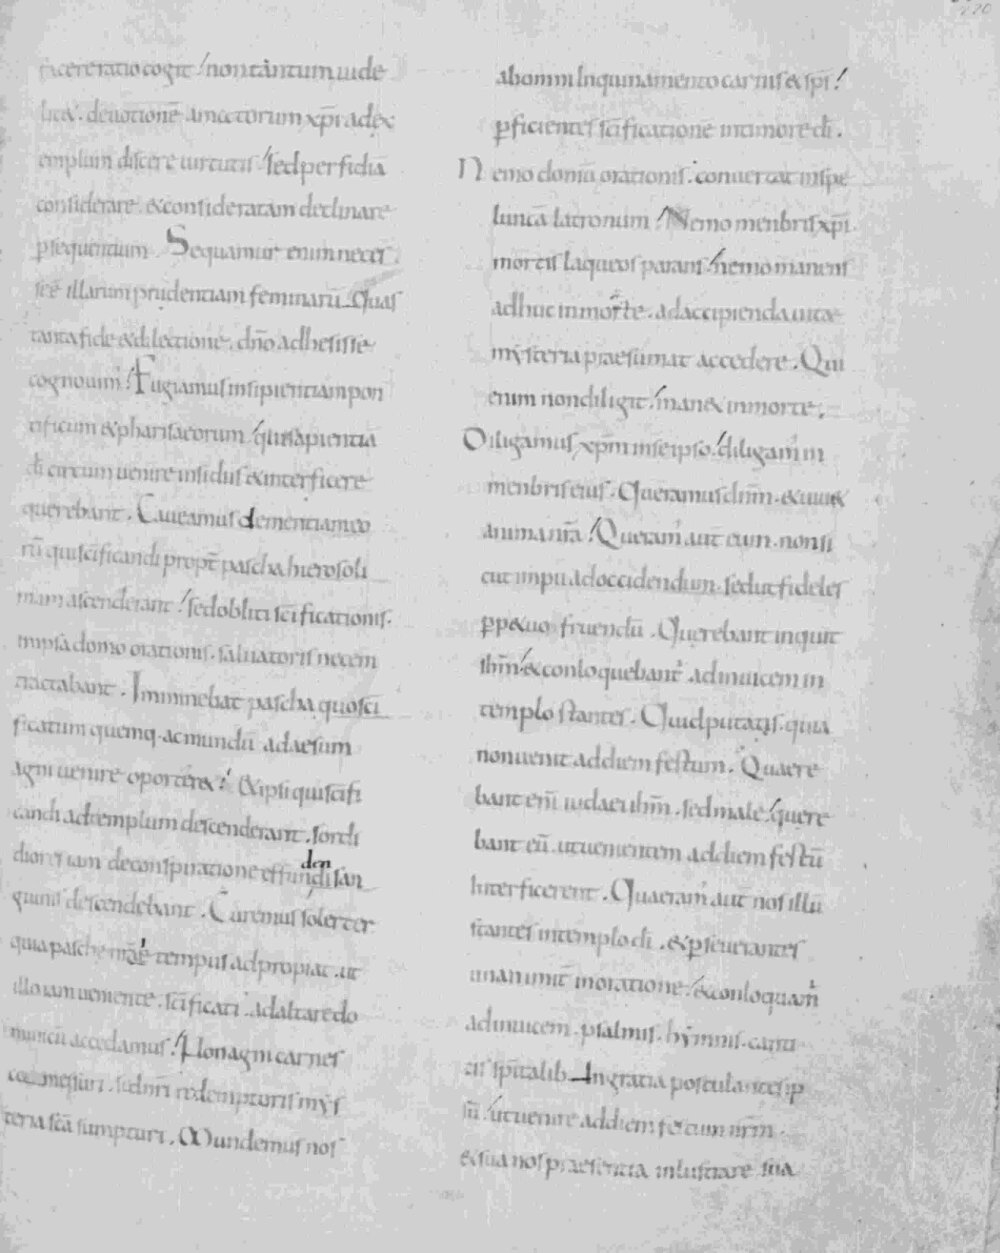 ficere ratio cogit / non tantum uide
licet. deuotione amicorum xp̄i ad ex
emplum discere uirtutis / sed perfidiā
considerare. & consideratam declinare
p̱sequentium. Sequamur enim necess
sē illarum prudentiam feminarū. Quas
tanta fide & dilectione. dn̄o adhesisse
cognouim' / Fugiamus insipientiam pon
tificum & pharisaeorum / qui sapientiā
dī circum uenire insidiis & interficere
querebant. Caueamus dementiam eo
rū qui scīficandi propt̄ pascha hierosoli
mam ascenderant / sed obliti scīficationis.
in ipsa domo orationis. saluatoris necem
tractabant. Imminebat pascha quo scī
ficatum quemq. ac mundū ad aesum
agni uenire oporteret / Et ipsi qui scīfi
candi ad templum descenderant. sordi
diores iam de conspiratione effundendi san
guinis descendebant. Curemus solerter
quia pasche nr̄ē tempus adpropiat. ut
illo iam ueniente. scīficati. ad altare do
minicū accedamus / Non agni carnes
comesturi. sed nr̄i redemptoris mys
teria scā sumpturi. Mundemus nos
ab omni Inquinamento carnis & sp̄s /
p̱ficientes scīficatione in timore dī.
Nemo domū orationis. conuertat in spe
luncā latronum / Nemo menbris xp̄i.
mortis laqueos parans / nemo manens
adhuc in morte. ad accipienda uitae
mysteria praesumat accedere. Qui
enim non diligit. / man& in morte.
Diligamus xp̄m in se ipso. / diligam' in
menbris eius. Queramus dn̄m. & uiu&
anima nr̄a / Queram' aut̄ eum. non si
cut impii ad occidendum. sed ut fideles
p̱p&uo fruendū. Querebant inquit
ih̄m / & conloquebant' ad inuicem in
templo stantes. Quid putatis. quia
non uenit ad diem festum. Quaere
bant enī iudaei ih̄m. sed male / quere
bant eū. ut uenientem ad diem festū
Interficerent. Quaeram' aut̄ nos illū
stantes in templo dī. & p̱seuerantes
unanimit̄ in oratione. / & conloquam'
ad inuicem. psalmis. hymnis. canti
cis sp̄italib. In gratia postulantes ip
sū / ut uenire ad diem festum nr̄m.
& sua nos praesentia inlustrare. sua